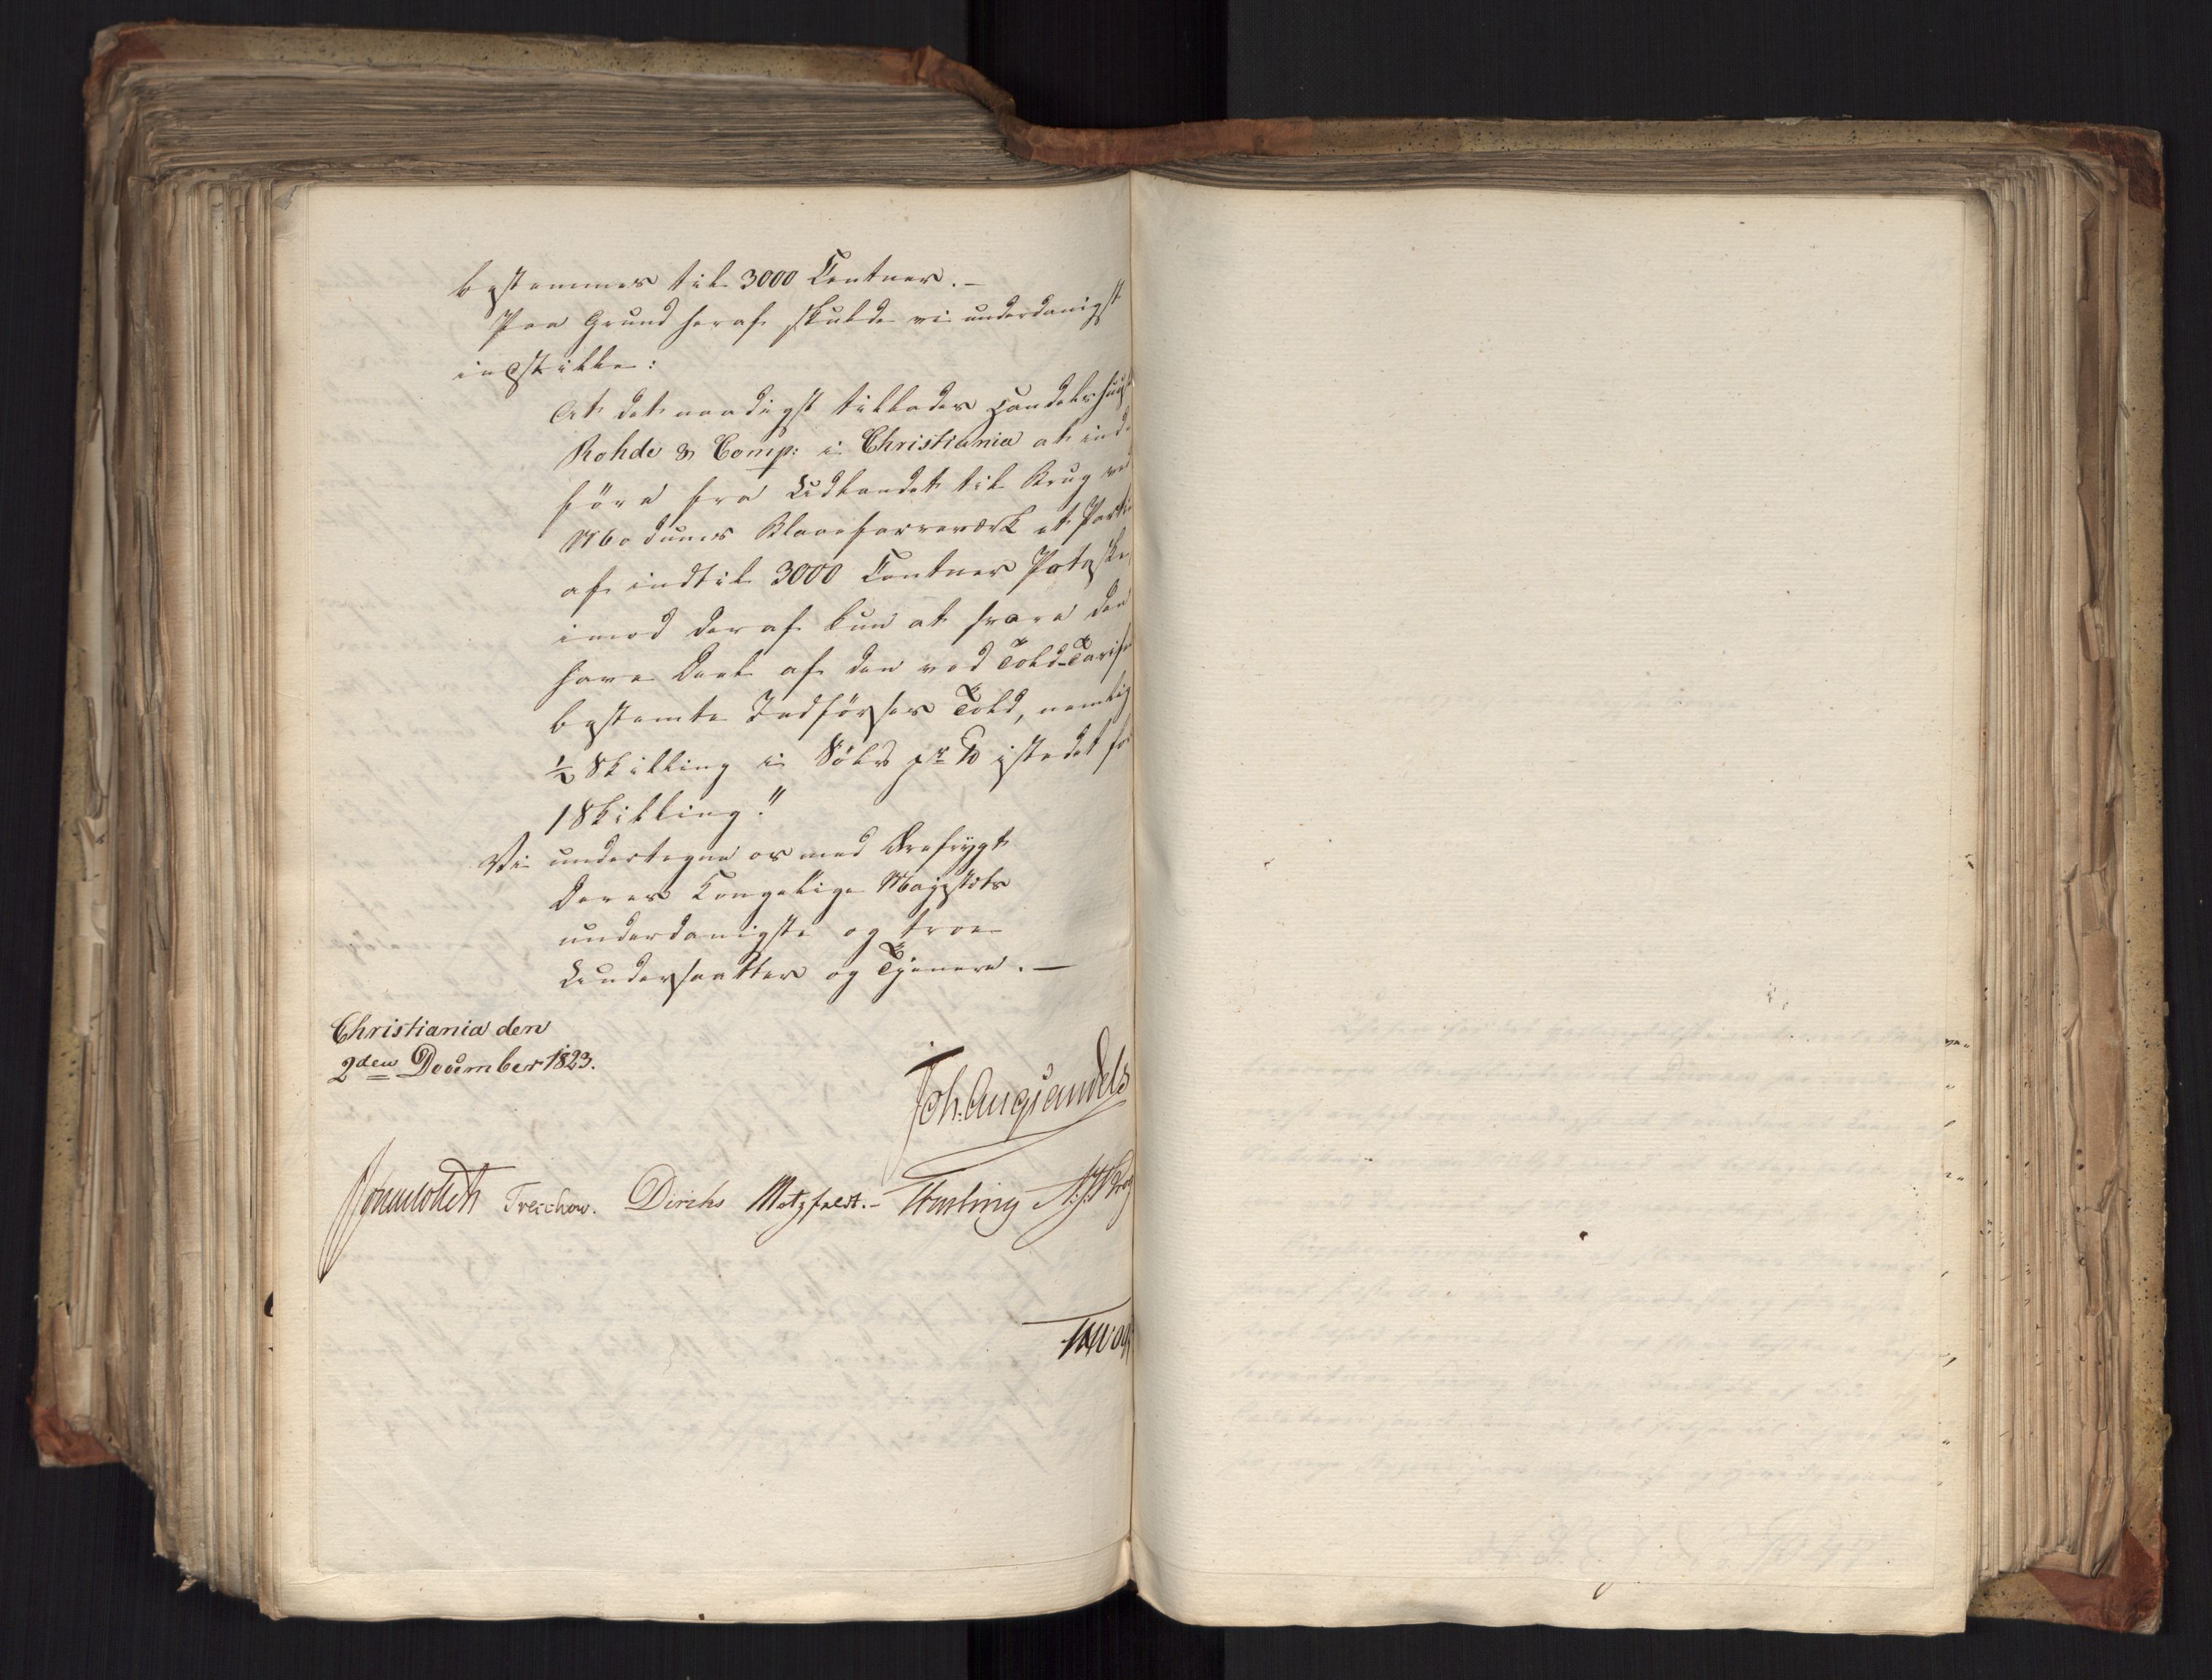 bestemmes til 3000 Centner. –
Paa Grund heraf skulde vi underdanigst
indstille:
At det naadigst tillades Handelshuset
Rohde & Comp: i Christiania at ind-
före fra Udlandet til Brug ved
Modums Blaafarveværk et Partie
af indtil 3000 Centner Potaske,
imod deraf kun at svare den
halve Deel af den ved Told-Tarifen
bestemte Indförsels Told, nemlig
½ Skilling in Sölv pr ℔ istedet for
1 Skilling."
Vi undertegne os med Ærefrygt
Deres Kongelige Majestæts
underdanigste og troe
Undersaatter og Tjenere. –
Christiania den
2den December 1823.
Joh. Aug Sandels
Treschow. Diriks Motzfeldt. – Fasting